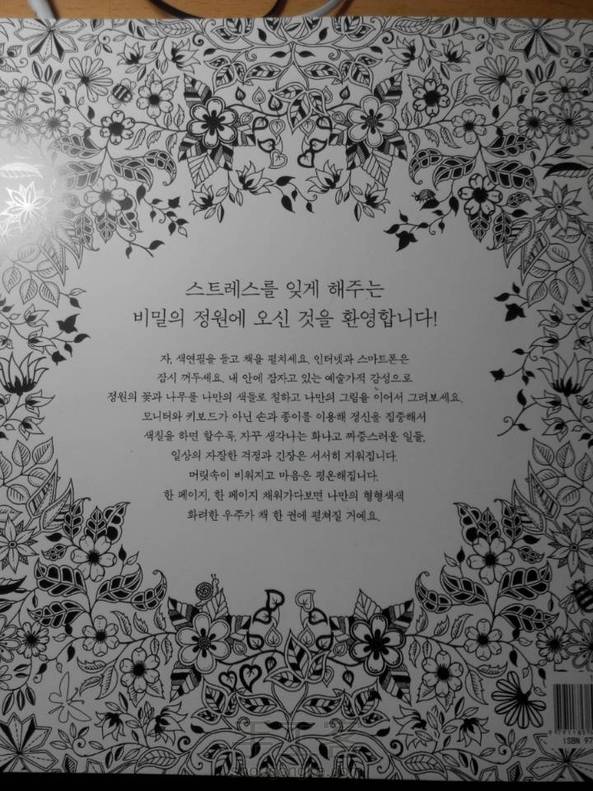 스트레스를 잊게 해주는
비밀의 정원에 오신 것을 환영합니다!
자, 색연필을 들고 책을 펼치세요. 인터넷과 스마트폰은
잠시 꺼두세요. 내 안에 잠자고 있는 예술가적 감성으로
정원의 꽃과 나무를 나만의 색들로 칠하고 나만의 그림을 이어서 그려보세요.
모니터와 키보드가 아닌 손과 종이를 이용해 정신을 집중해서
색칠을 하면 할수록, 자꾸 생각나는 화나고 짜증스러운 일들,
일상의 자잘한 걱정과 긴장은 서서히 지워집니다.
머릿속이 비워지고 마음은 평온해집니다.
한 페이지, 한 페이지 채워가다보면 나만의 형형색색
화려한 우주가 책 한 권에 펼쳐질 거예요.
ISBN 97